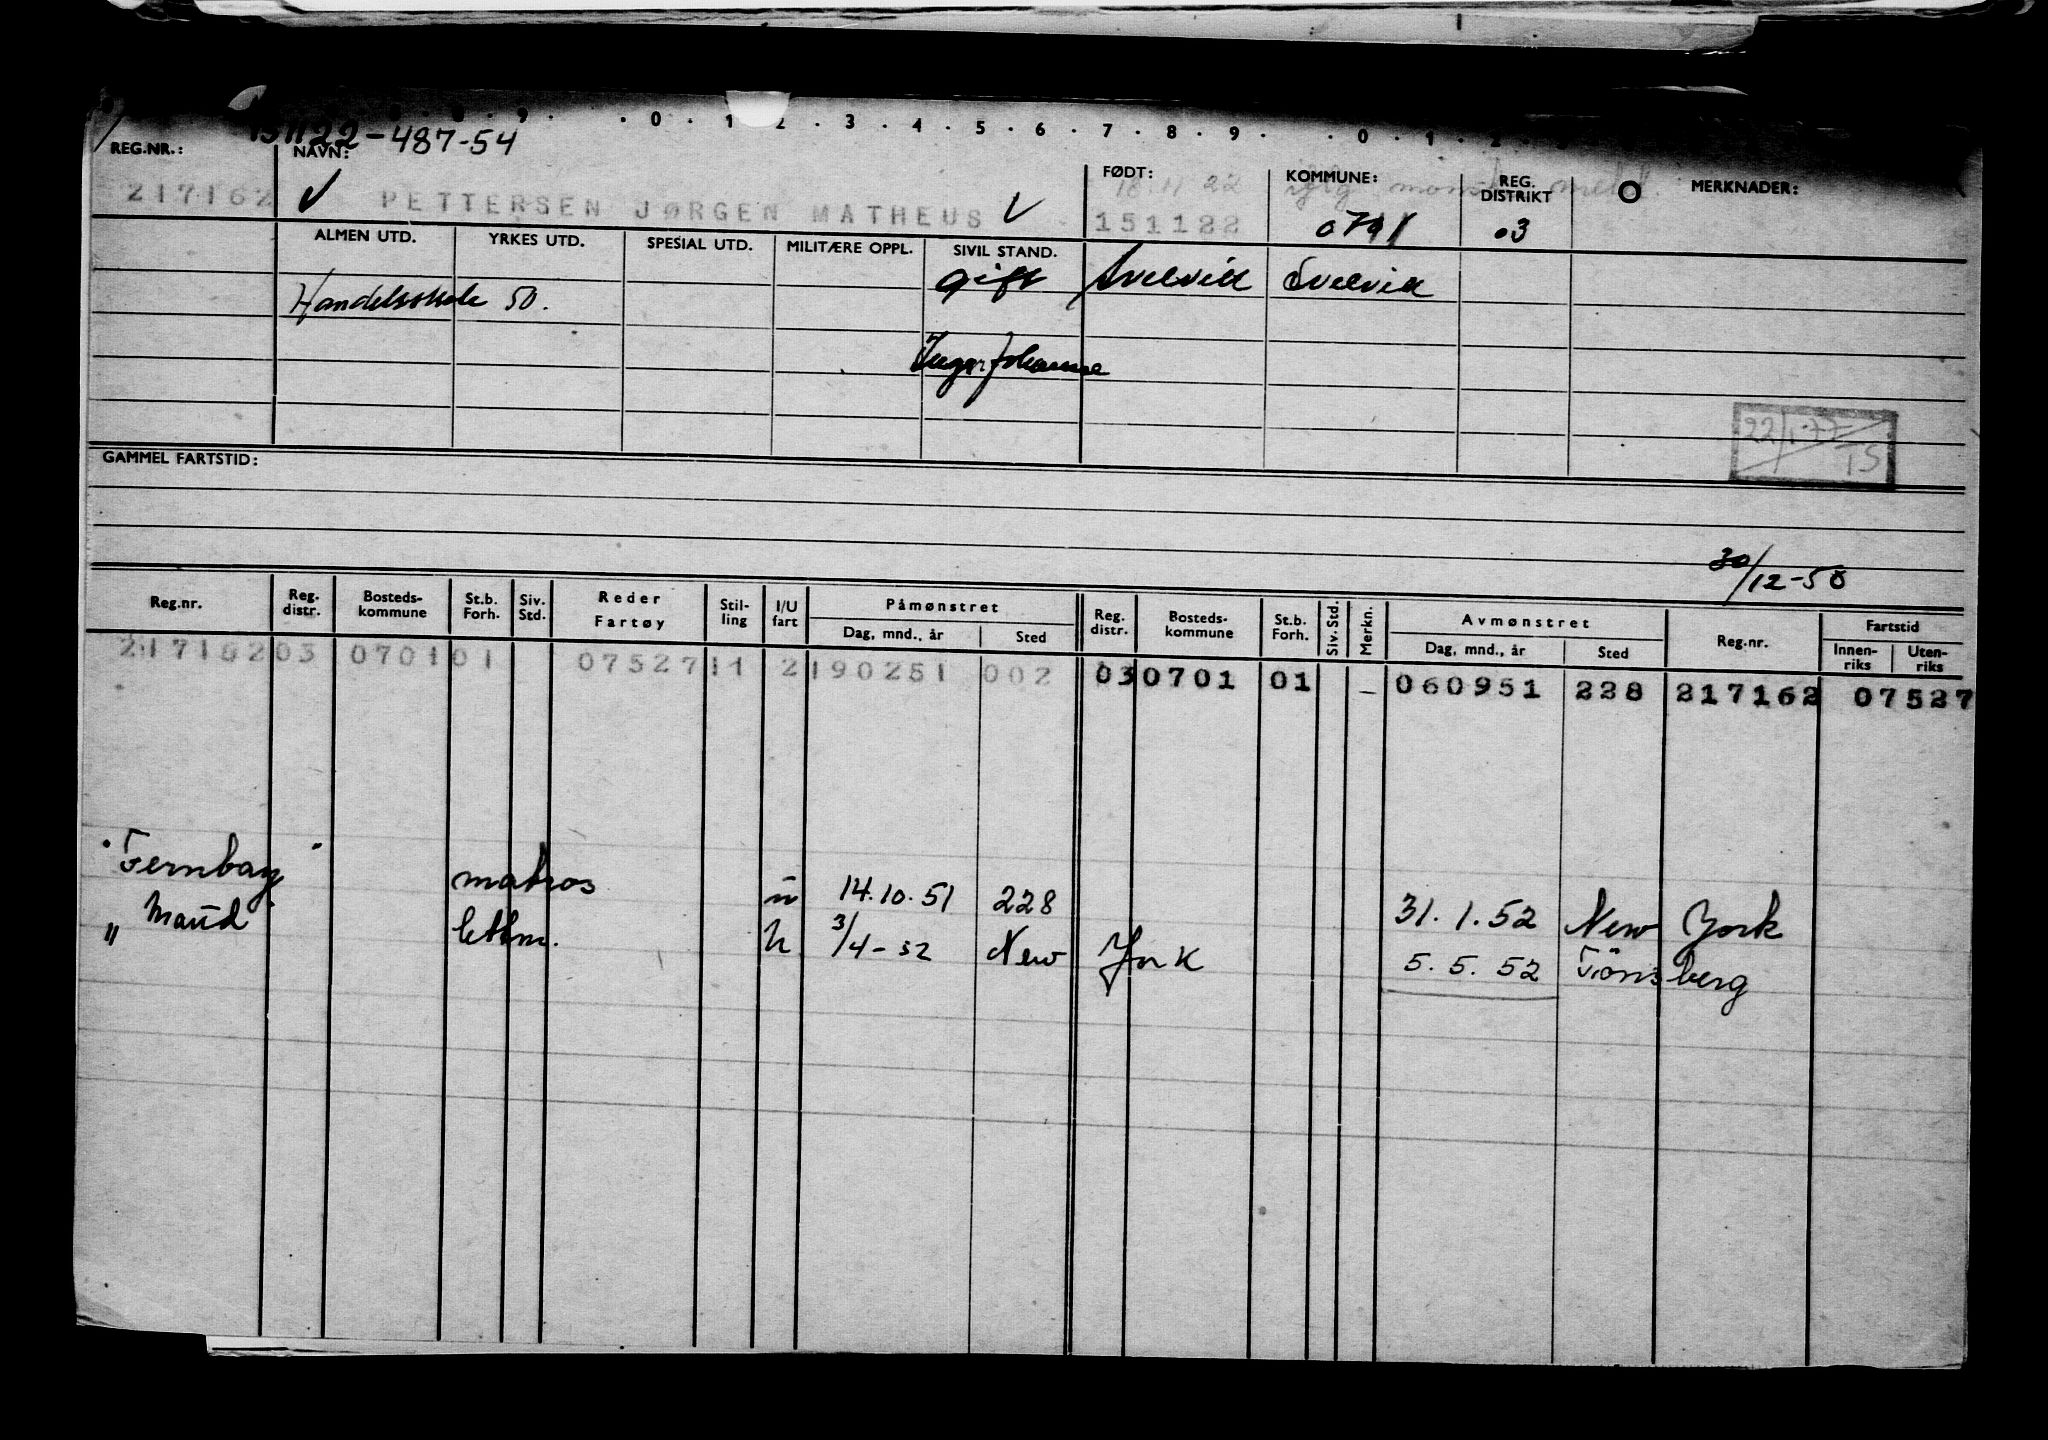 151122-487-54
. 8 . 9 . . 0 . 1 . 2 . 3 . 4 . 5 . 6 . 7 . 8 . 9 . . 0 . 1 . 2 .
REG.NR.: NAVN: FØDT: KOMMUNE: REG. DISTRIKT MERKNADER:
217162 PETTERSEN JØRGEN MATHEUS 151122 03
ALMEN UTD. YRKES UTD. SPESIAL UTD. MILITÆRE OPPL. SIVIL STAND.
gift Svelvik Svelvik
Handelsskole 50.
Inger Johanne
22/1-77
TS
GAMMEL FARTSTID:
30/12-50
Reg.nr. Reg. distr. Bosteds-kommune St.b. Forh. Siv. Std. Reder Fartøy Stil-ling I/U fart Påmønstret Dag, mnd., år Sted Reg. distr. Bosteds-kommune St.b. Forh. Siv. Std. Merkn. Avmønstret Dag, mnd., år Sted Reg.nr. Fartstid Innen-riks Uten-riks
217162 03 0701 01 07527 11 2 190251 002 03 0701 01 – 060951 228 217162 07527
"Fernbay" matros u 14.10.51 228 31.1.52 New York
"Maud" lettm. u 3/4-52 New York 5.5.52 Tönsberg